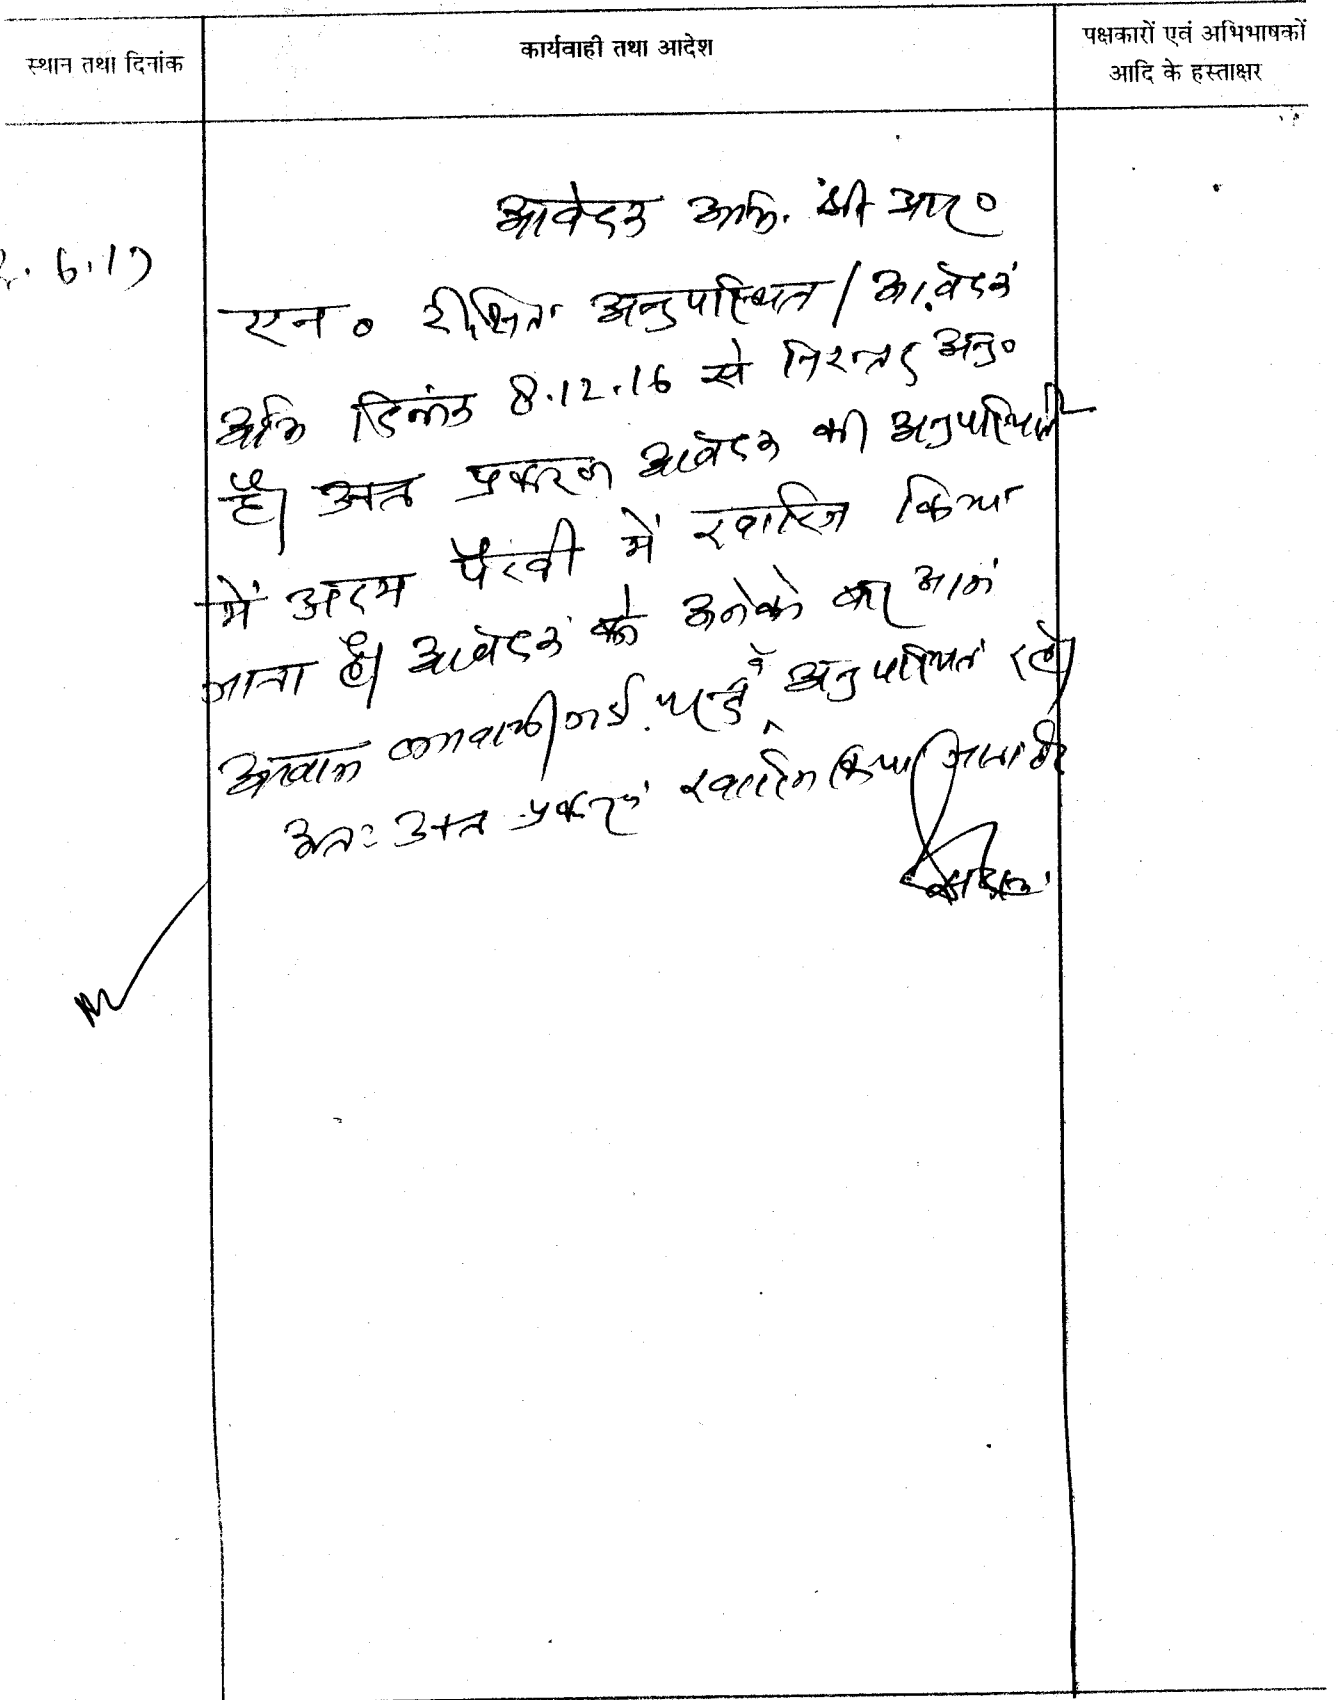 स्थान तथा दिनांक
कार्यवाही तथा आदेश
पक्षकारों एवं अभिभाषकों
आदि के हस्ताक्षर
आवेदक अभि. श्री आर०
6.17
एन० दीक्षित अनुपस्थित / आवेदक
अभि दिनांक 8.12.16 से निरन्तर अनु०
है। अतः प्रकरण आवेदक की अनुपस्थिति
में अदम पैरवी में खारिज किया
जाता है। आवेदक को अनेको बार
आवाज लगवायी गई. परन्तु वे अनुपस्थित रहे।
अतः प्रकरण खारिज किया जाता है।